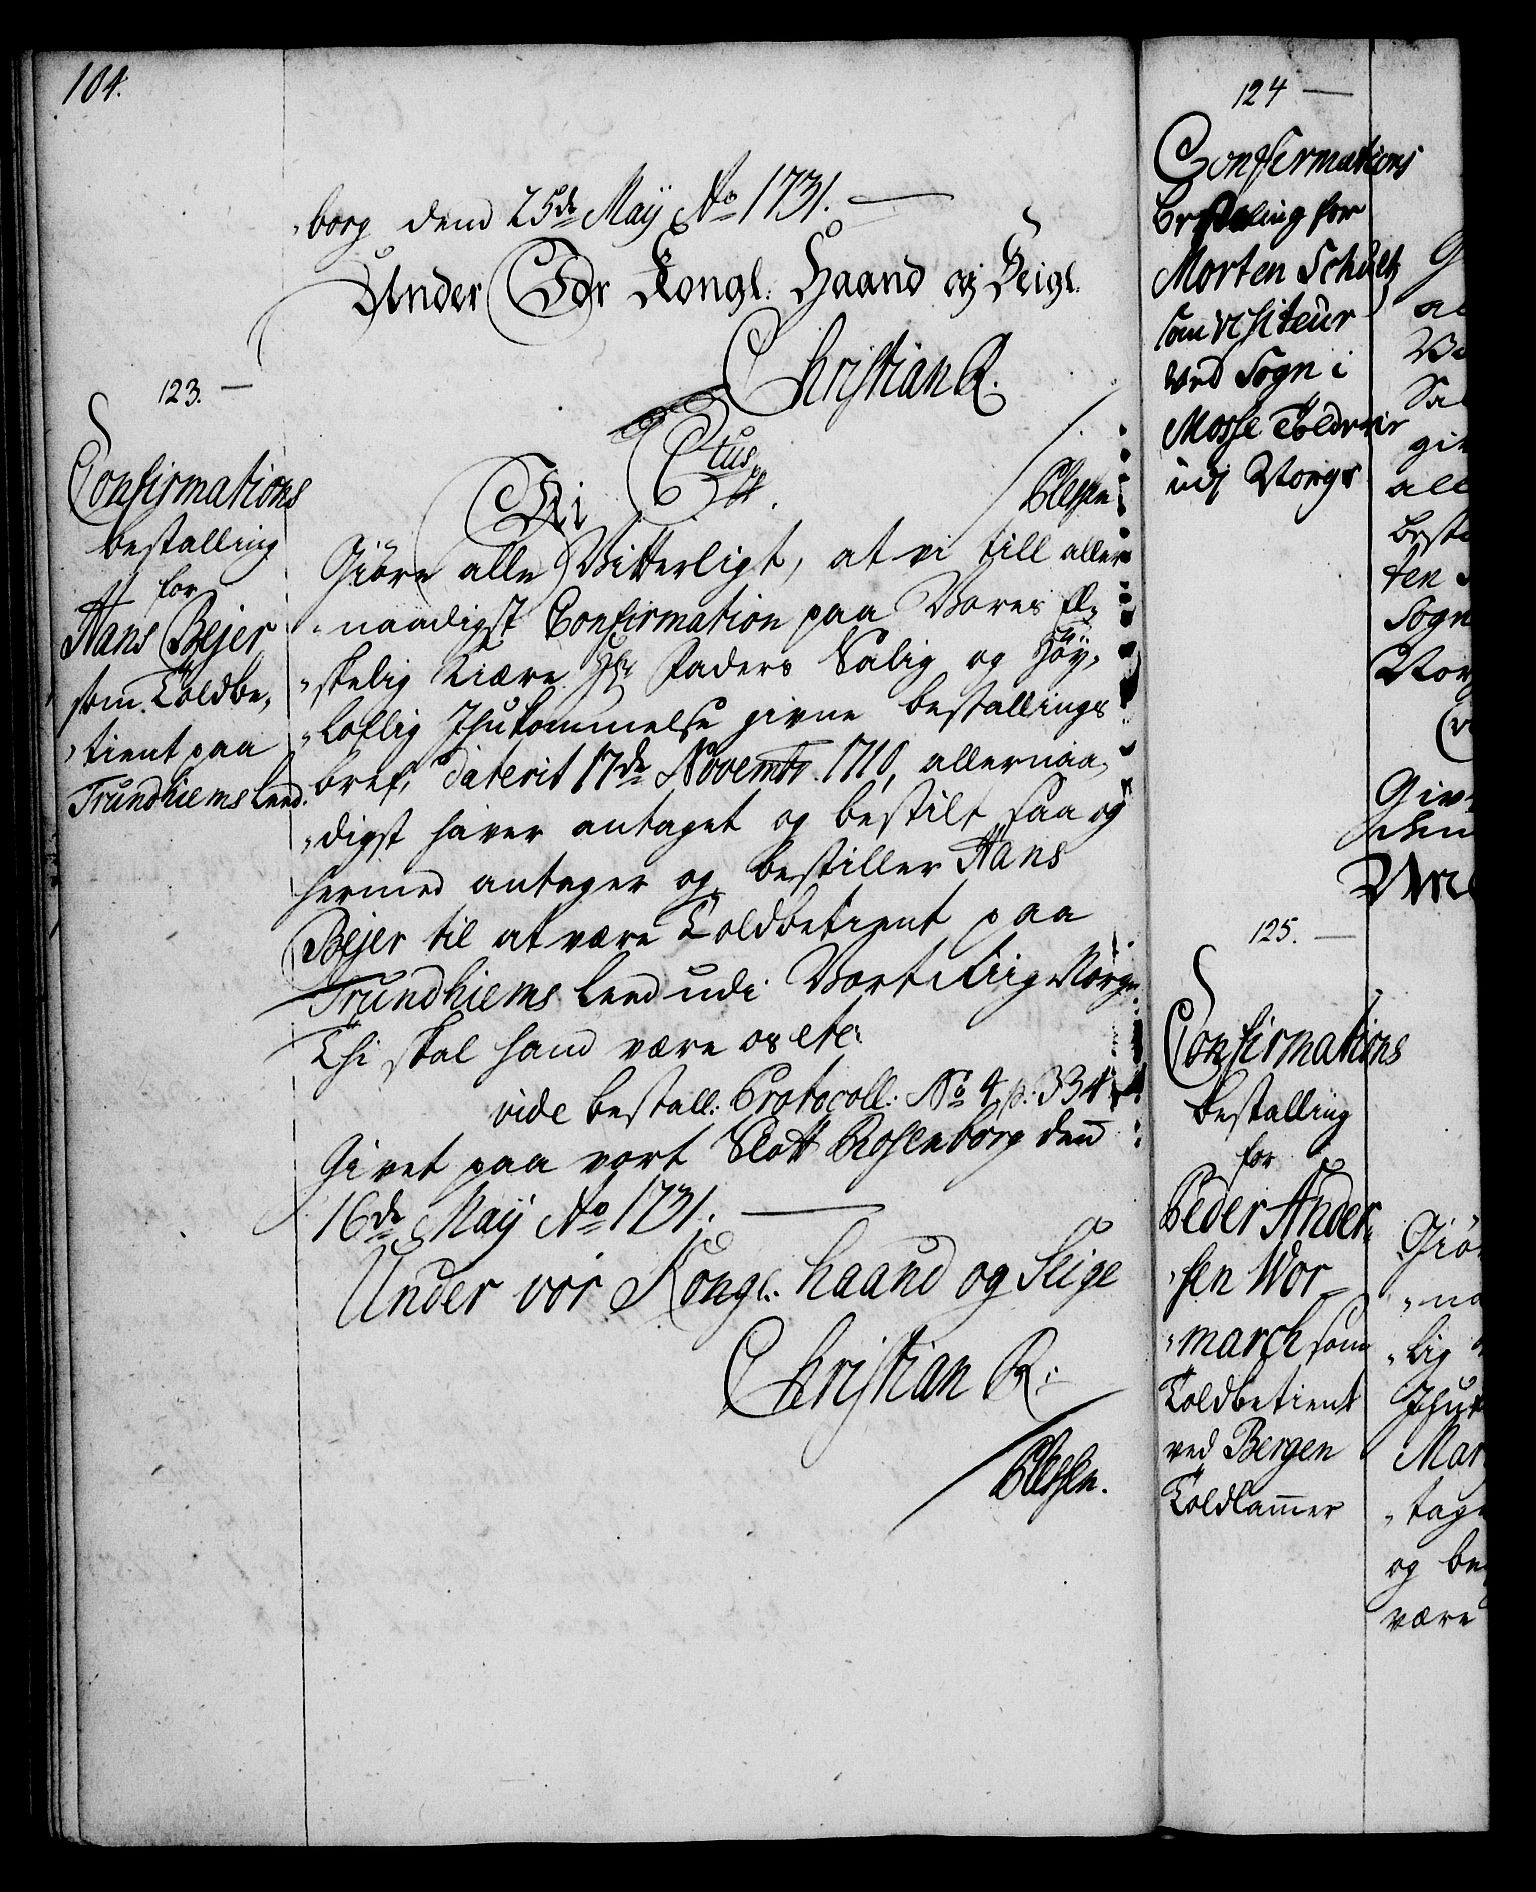 104.
borg dend 25de Maÿ Ao 1731. —
Under Vor Kongl: Haand og Seigl.
Christian R.
Plessen
123. —
Confirmations
bestalling
for
Hans Bejer
som Toldbe,
„tient paa
Trundhiems Leed.
Vi
Ctus
Giöre alle Vitterligt, at vi till aller
„naadigst Confirmation paa Vores El,
„skelig kiære Hr Faders Salig og Höy,
„loflig Ihukommelse givne bestallings
bref, daterit 17de Novembr. 1710, allernaa,
„digst haver antaget og bestilt, saa og
hermed antager og bestiller Hans
Bejer til at være Toldbetient paa
Trundhiems Leed udi Vort Riig Norge,
Thi skal hand være os etc:
vide Bestall: Protocoll: No 4 p: 334
Givet paa vort Slott Rosenborg den
16de Maÿ Ao 1731. —
Under vor Kongl: haand og Seigl
Christian R:
Plessen.
124 —
Confirmations
bestalling for
Morten Schultz
som visiteur
ved Sogn i
Mosse Tolderie
udj Norge
125. —
Confirmations
bestalling
for
Peder Ander„
„sen Wor„
„march som
Toldbetient
ved Bergen
Toldkammer
G
al
Vo
Sa
giv
all
besta
ten S
Sogn
Nor
Giv
Un
Giö
„na
„lig
Ihuk
Mar
„tage
og be
være